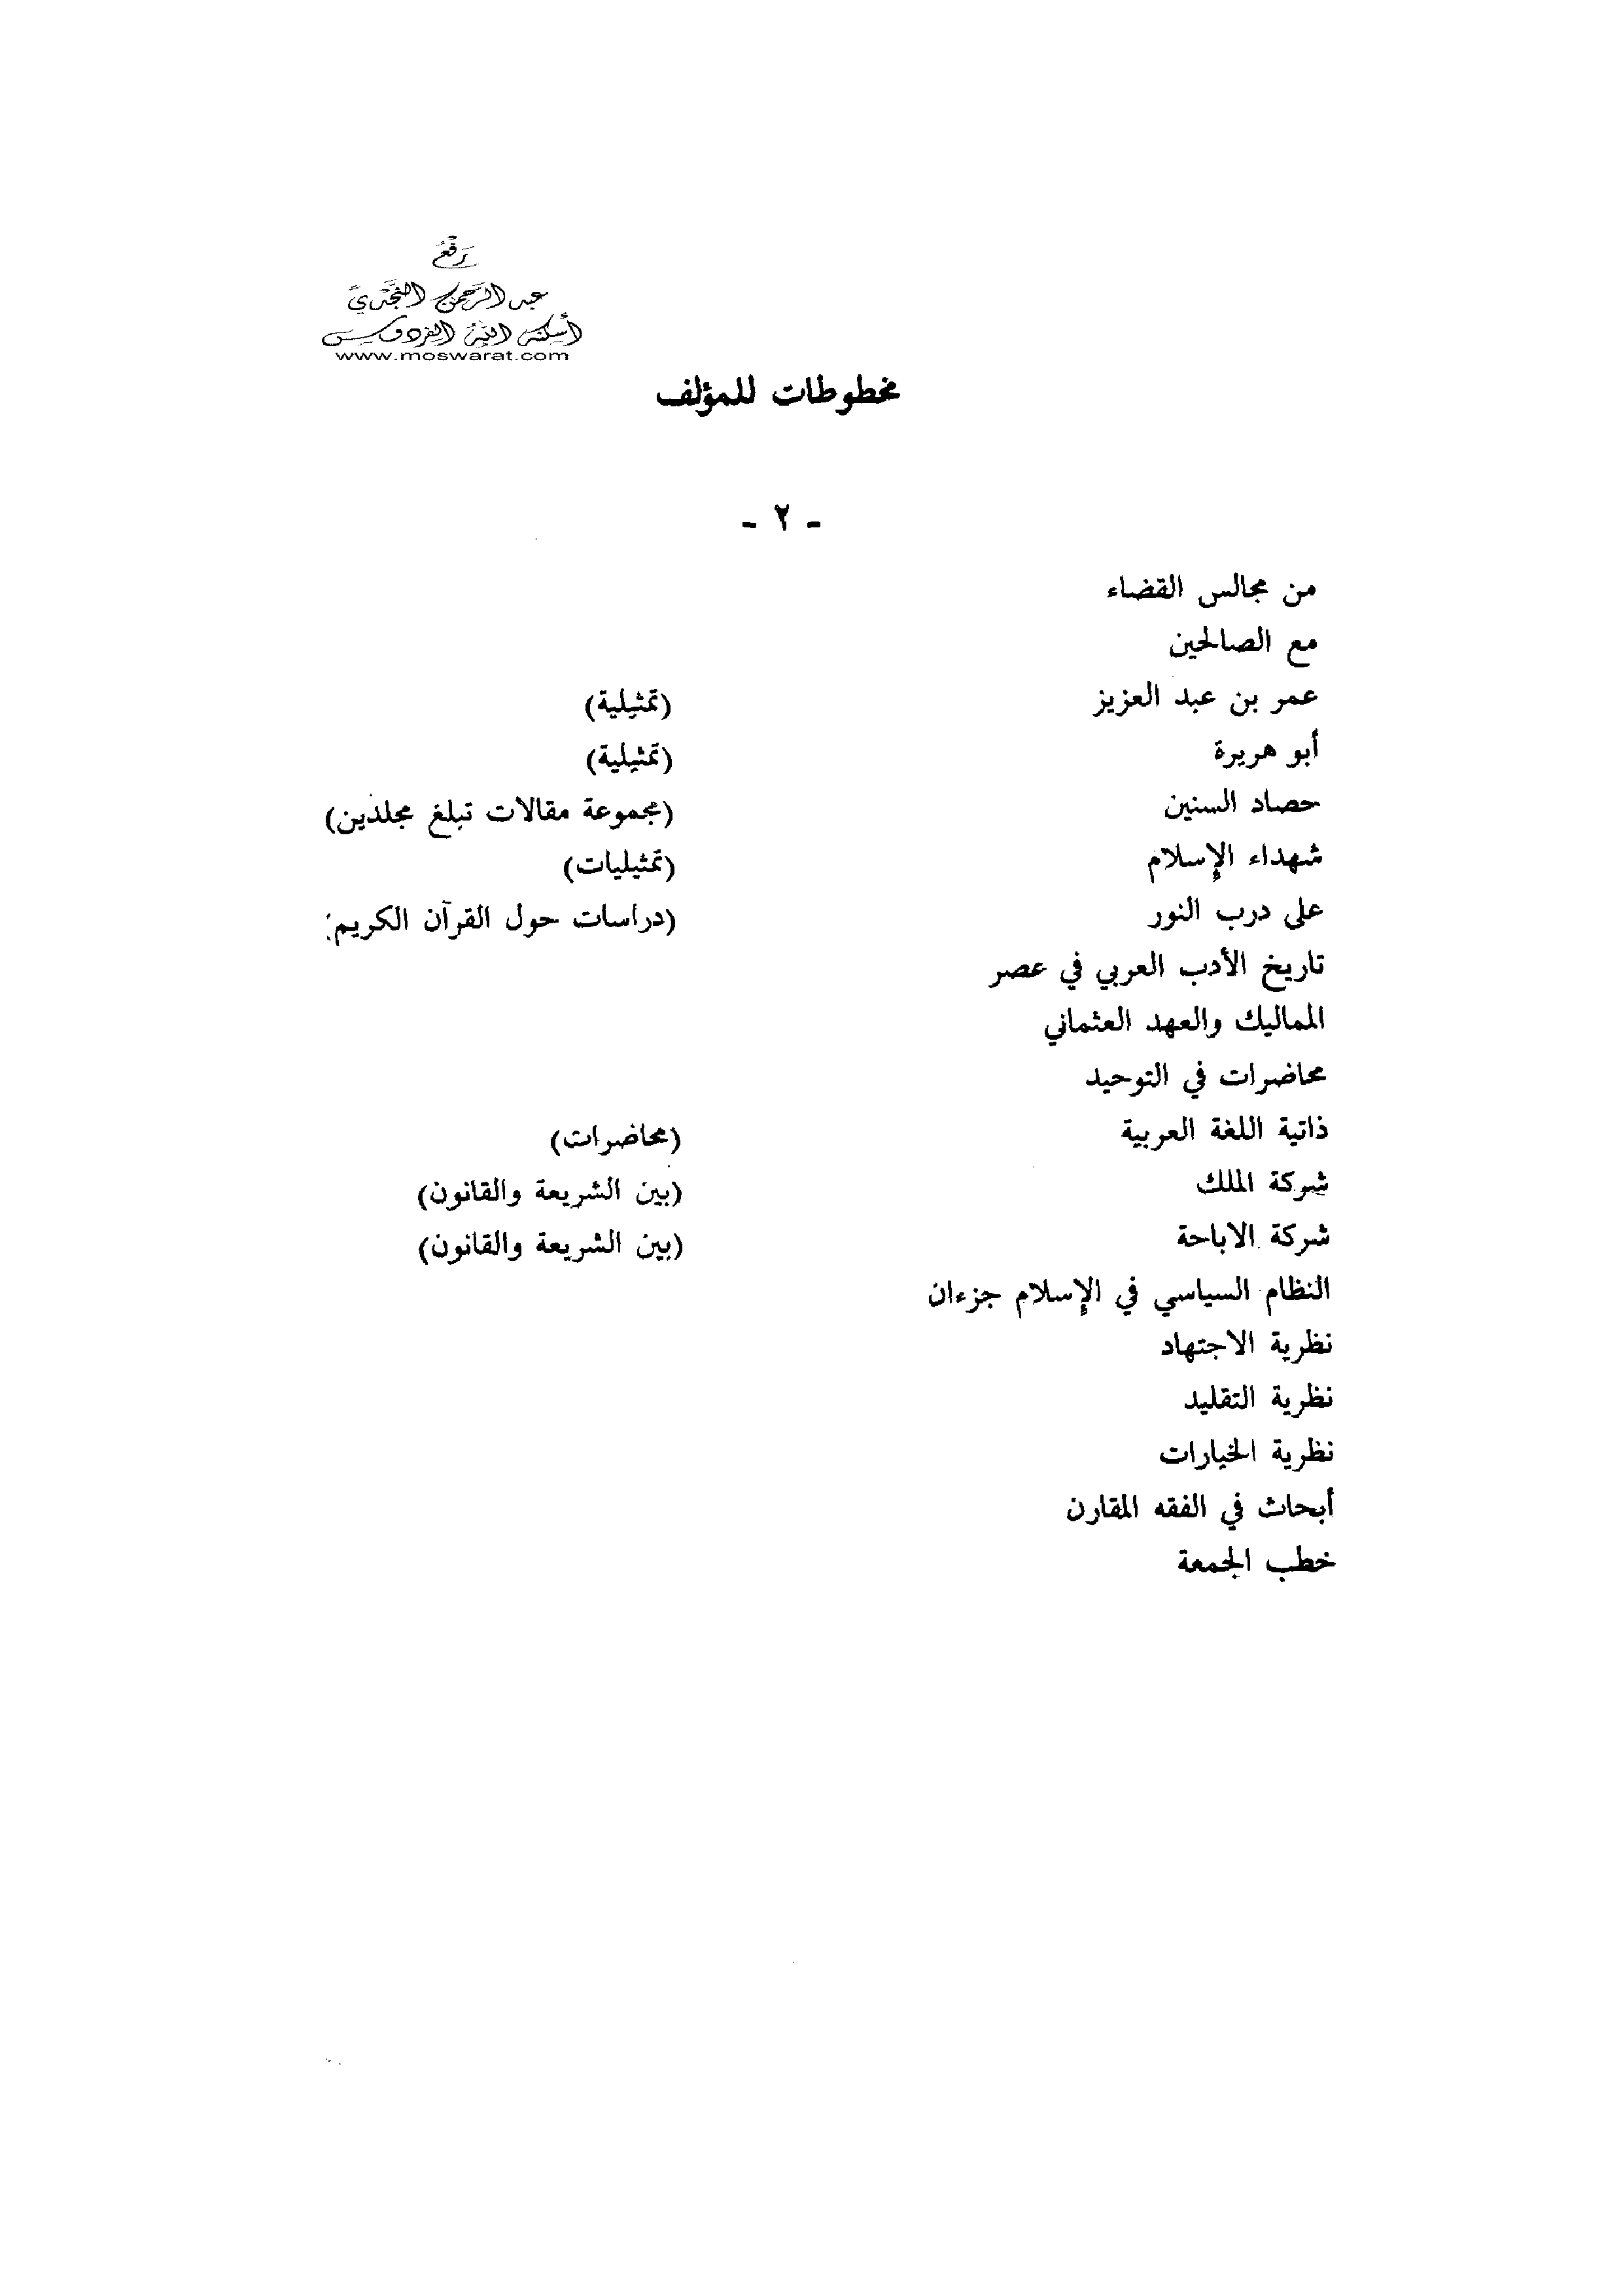 رفع
عبد الرحمن النجدي
أسكنه الله الفردوس
www.moswarat.com
مخطوطات للمؤلف
- ٢ -
من مجالس القضاء
مع الصالحين
عمر بن عبد العزيز (تمثيلية)
أبو هريرة (تمثيلية)
حصاد السنين (مجموعة مقالات تبلغ مجلدين)
شهداء الإسلام (تمثيليات)
على درب النور (دراسات حول القرآن الكريم)
تاريخ الأدب العربي في عصر
المماليك والعهد العثماني
محاضرات في التوحيد
ذاتية اللغة العربية (محاضرات)
شركة الملك (بين الشريعة والقانون)
شركة الاباحة (بين الشريعة والقانون)
النظام السياسي في الإسلام جزءان
نظرية الاجتهاد
نظرية التقليد
نظرية الخيارات
أبحاث في الفقه المقارن
خطب الجمعة